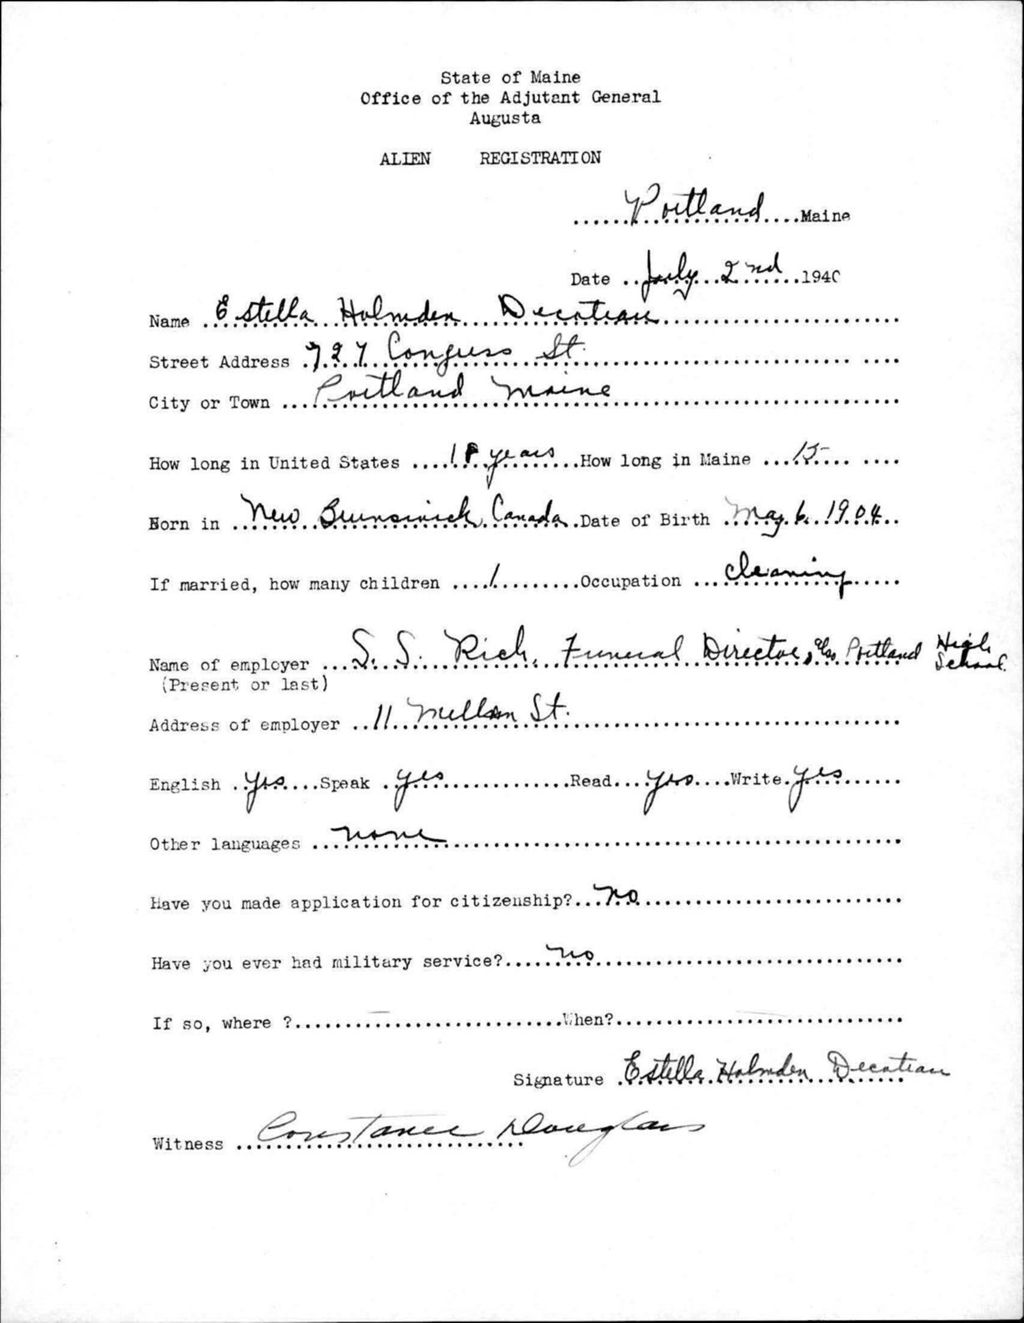 State of Maine
Office of the Adjutant General
Augusta
ALIEN REGISTRATION
......Portland....Maine
Date ..July 2nd.....1940
Name ..Estella Holmden Decoteau.............................
Street Address .727 Congress St.............................
City or Town ...Portland Maine.............................
How long in United States .... years........How long in Maine ...15..... ....
Born in ..New Brunswick, Canada..Date of Birth ..May 6, 1904..
If married, how many children ....1.........Occupation ...cleaning......
Name of employer ...S. S. Rich, Funeral Director, & Portland High School
(Present or last)
Address of employer ..11 Mellen St.............................
English ..yes....Speak ..yes...............Read...yes....Write.yes......
Other languages ..none.............................
Have you made application for citizenship?...No.............................
Have you ever had military service?.....no.............................
If so, where ?...........................When?.............................
Signature .Estella Holmden Decoteau
Witness ..Constance Douglass